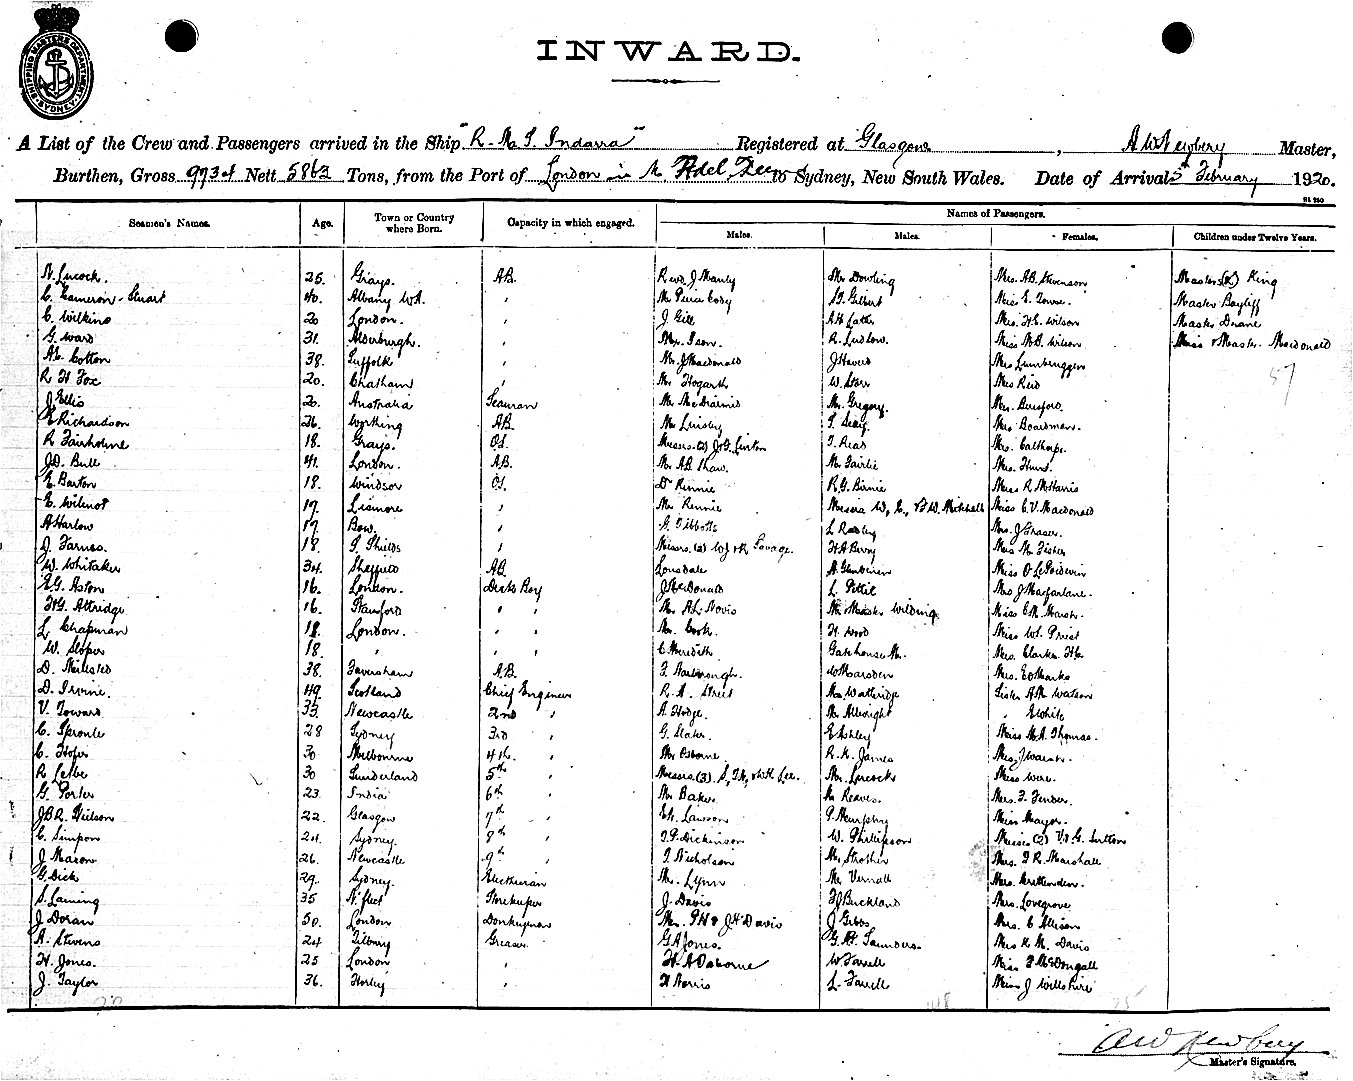 SHIPPING MASTERS DEPARTMENT SYDNEY
INWARD.
A List of the Crew and Passengers arrived in the Ship "R.M.S. Indarra" Registered at Glasgow, A W Newbery Master,
Burthen, Gross 9734 Nett 5863 Tons, from the Port of London to Sydney, New South Wales. Date of Arrival 5 February 1920.
Names of Passengers.
Seamen's Names. Age. Town or Country where Born. Capacity in which engaged. Males. Males. Females. Children under Twelve Years.
N. Lucock. 25. Grays. AB. Revd J Manly Mr Dowling Mrs. AB. Stevenson Masters (2) King
C. Cameron-Stuart 40. Albany WA. " Mr Peirce Cody S. Gilbert Miss E. Towne. Master Bayliff
C. Wilkins 20 London. " J Gill Mrs. H.C. Wilson Master Duane
G. Ward 31. Alderburgh. " R. Ludlow. Miss M.B. Wilson Miss & Master Macdonald
Cotton 38. Suffolk " Mr. J Macdonald J Havers
R H Fox 20. Chatham " Mr Hogarth W. Starr Mrs Reid 57
J Ellis 20. Australia Seaman Mr McDiarmid Mr. Gregory. Mrs. Beresford.
E Richardson 26. Worthing AB. Mr Linsley Mrs Boardman.
R Fairholme 18. Grays. OS. Messrs (2) J & G. Linton T. Read Mrs. Calthorpe.
J.D. Bull 41. London. AB. Mr AB Shaw. Mr Fairlie Mrs. Hunt.
E. Barton 18. Windsor OS. Dr Rennie R.G. Birnie Miss R McHarris
E. Wilmot 17. Lismore " Mr Rennie Messrs W, C, & F.W. Mitchell Miss C V. Macdonald
A Harlow 17. Bow. " G. Tibbotts L Radley Mrs. J Fraser.
J. Farnes. 18. S. Shields " Messrs (2) W J & R Savage. H A Berry Miss M Fisher
W. Whitaker 34. Sheffield AB. Lonsdale Miss O L Goldwin
E.G. Aston 16. London. Decks Boy J McDonald L. Pettit Mrs J Macfarlane.
H.G. Attridge 16. Stamford " " Mr A.L. Novis Mr Master Wilding. Miss E M. Marsh.
L Chapman 18. London. " " Mr. Cook. H. Wood Miss W.L. Priest
W. Sloper 18. " " " C Meredith Gatehouse M. Mrs. Clarke H C
D. Nailsted 38. Faversham A.B. F. Scarborough. W Marsden Mrs. E D Marks
D. Irvine. 49. Scotland Chief Engineer R. A. Street Mr Waltridge Sister A M Watson
V. Toward 33. Newcastle 2nd " A. Hodge. Mr Allbright " E White
C. Sproule 28 Sydney 3rd " G. Slater. E Ashley Miss M.A. Thomas.
C. Hofer 30 Melbourne 4th " Mr Osborne R. K. James
R Leslie 30 Sunderland 5th " Mr. Lucock Miss Weir.
G. Porter 23. India 6th " Mr Baker Mr Reaves. Mrs. F. Fender.
J.B.R. Neilson 22. Glasgow 7th " E.H. Lawson P. Humphry Miss Mayor.
C. Simpson 24. Sydney. 8th " T.P. Dickinson W. Phillipson Misses (2) V & G. Sutton
J Mason 26. Newcastle 9th " T. Nicholson Mr. Strother Mrs. T R. Marshall
G. Dick 29. Sydney. Electrician Mr. Lynn Mr Vernall Mrs. Crittenden.
S. Laming 35 N'fleet Storekeeper J. Davis F.J. Buckland Mrs. Lovegrove.
J Doran 50. London Donkeyman Mr. P.H & J.H Davis J Gibbs Mrs. C Allison
A. Stevens 24 Tilbury Greaser G A Jones. G.H. Saunders. Mrs R M. Davis
H. Jones. 25 London " H. A Osborne W Farrell Miss F McDougall
J. Taylor 36. Horley " H Norris L Farrell Miss J Willshire
A W Newbery
Master's Signature.